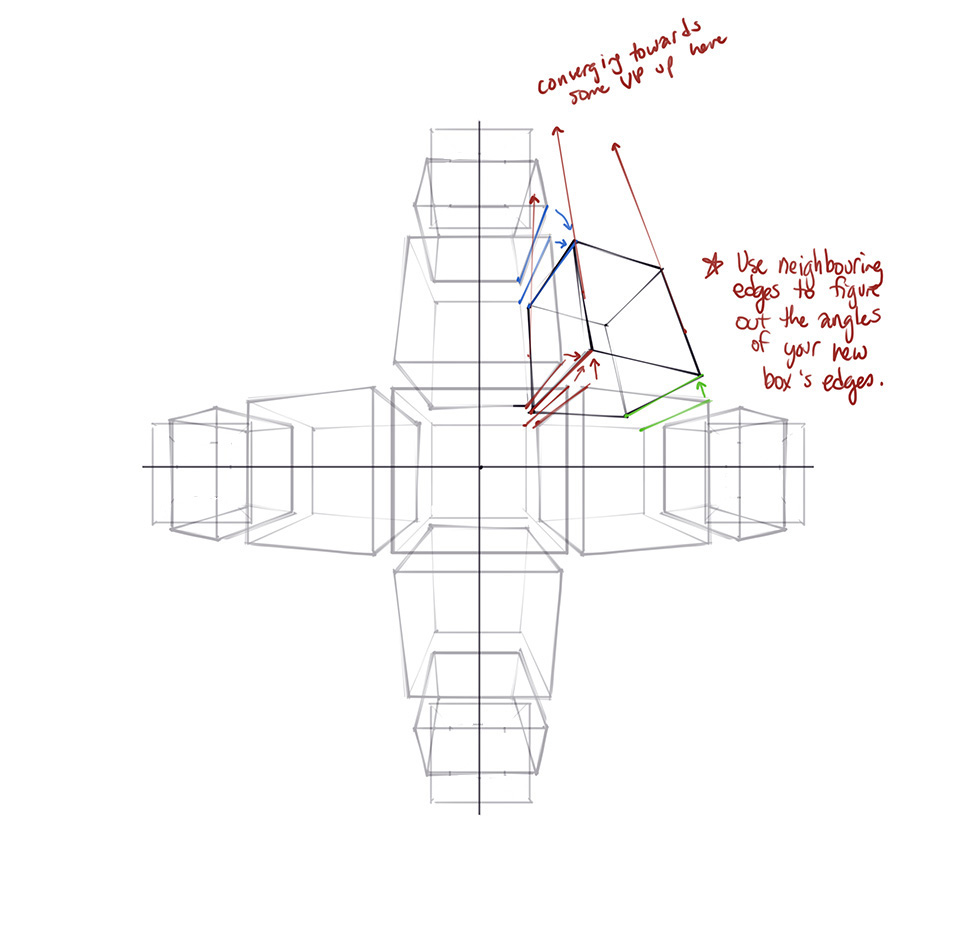 converging towards
some VP up here
* Use neighbouring
edges to figure
out the angles
of your new
box's edges.